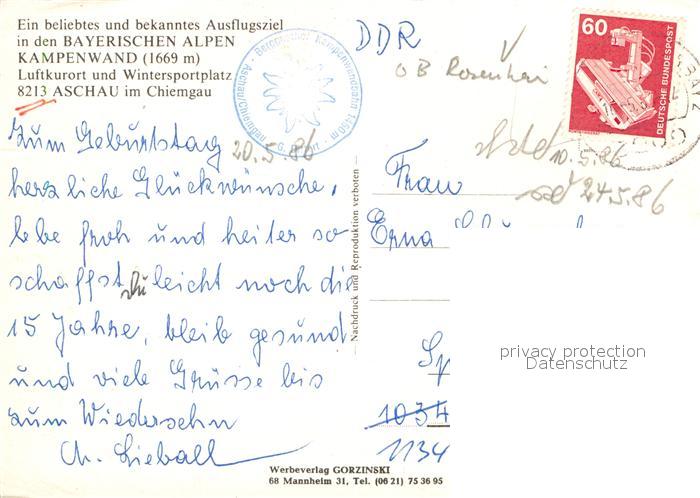 Ein beliebtes und bekanntes Ausflugsziel
in den BAYERISCHEN ALPEN
KAMPENWAND (1669 m)
Luftkurort und Wintersportplatz
8213 ASCHAU im Chiemgau
DDR
OB Rosenhei
60
DEUTSCHE BUNDESPOST
20.5.86
10.5.86
24.5.86
Zum Geburtstag
herzliche Glückwünsche,
lebe froh und heiter so
schaffst Du leicht noch die
15 Jahre, bleib gesund
und viele Grüsse bis
zum Wiedersehn
Ch. Lieball
Nachdruck und Reproduktion verboten
Frau
Erna
1034
1134
privacy protection
Datenschutz
Werbeverlag GORZINSKI
68 Mannheim 31, Tel. (06 21) 75 36 95